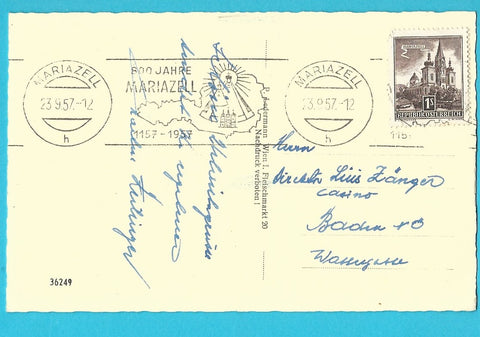 MARIAZELL
23.9.57.-12
h
800 JAHRE
MARIAZELL
1157-1957
MARIAZELL
23.9.57.-12
h
115
MARIAZELL
1S
REPUBLIK ÖSTERREICH
P. Ledermann Wien I, Fleischmarkt 20
Nachdruck verboten!
Urlaubsgrüsse
Herrn
Direktor Luis Zänger
Casino
Baden
Wassergasse
36249